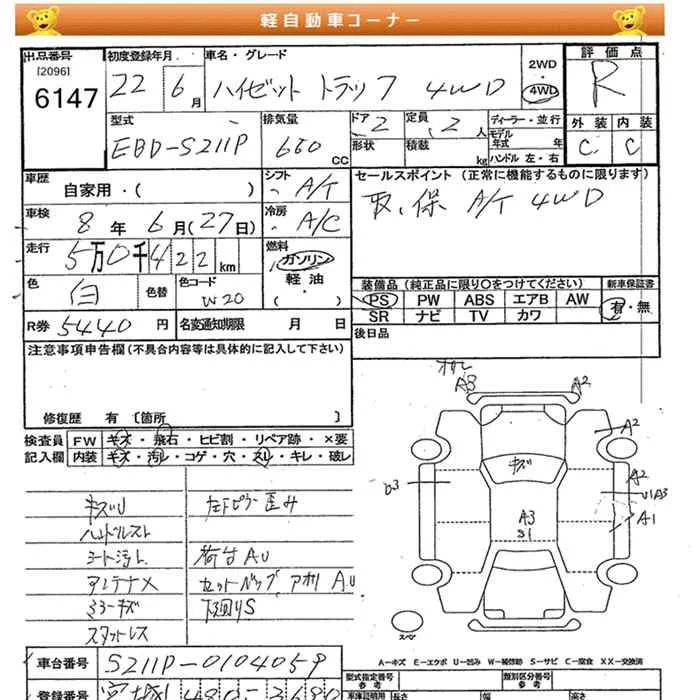 軽自動車コーナー
出品番号
[2096]
6147
初度登録年月
22 6月
車名・グレード
ハイゼット トラック 4WD
2WD
・
4WD
評価点
R
型式
EBD-S211P
排気量
660 CC
ドア 2
形状
定員 2人
積載 kg
ディーラー・並行
モデル年式 年
ハンドル 左・右
外装 内装
C C
車歴
自家用・( )
シフト A/T
セールスポイント (正常に機能するものに限ります)
取、保 A/T 4WD
車検 8年 6月(27日)
冷房 A/C
走行 5万0千422km
燃料
ガソリン
軽油
・( )
色 白
色替
色コード W20
装備品 (純正品に限り○をつけてください)
新車保証書
PS PW ABS エアB AW
有・無
SR ナビ TV カワ
R券 5440円
名変通知期限 月 日
後日品
注意事項申告欄(不具合内容等は具体的に記入して下さい)
修復歴 有 〔箇所 〕
検査員 FW キズ・飛石・ヒビ割・リペア跡・×要
記入欄 内装 キズ・汚レ・コゲ・穴・スレ・キレ・破レ
A3 A2
A2
キズ
A2
U1A3
A1
A3
S1
キズU
ハンドルスレ
シート汚れ
アンテナX
ミラーキズ
スタットレス
左下ピラー歪み
荷台A.U
セットバック, アオリ A.U
下廻りS
スペア
A-キズ E-エクボ U-凹み W-補修跡 S-サビ C-腐食 XX-交換済
車台番号 S211P-0104059
登録番号 宮城 480
型式指定番号
類別区分番号
長さ 幅 高さ